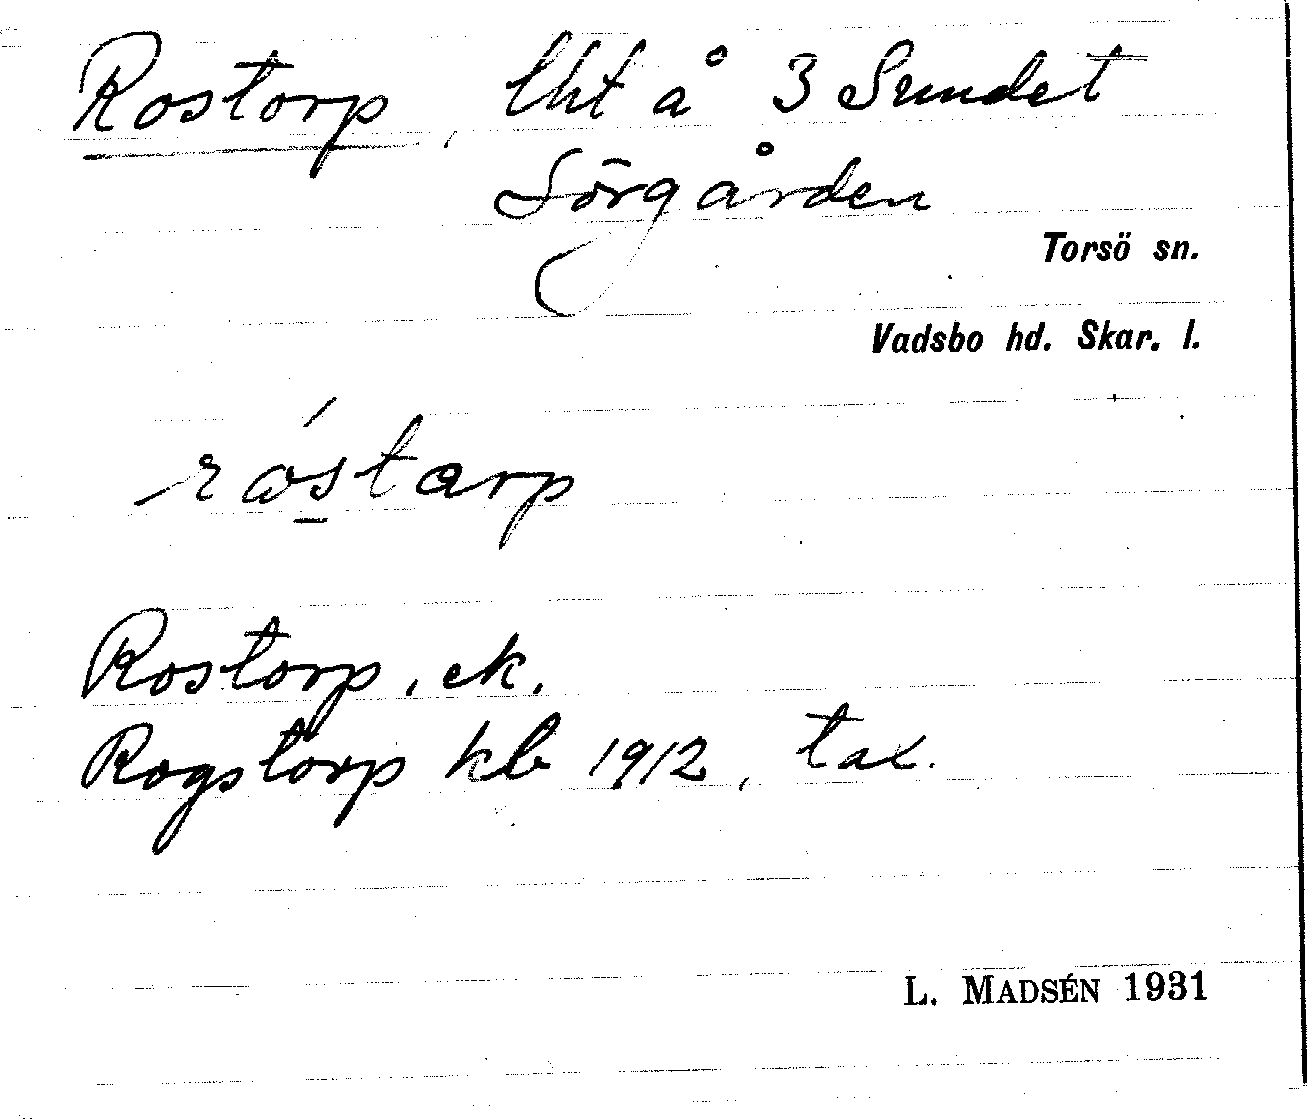 Rostorp, lht å 3 Sundet
Sörgården
Torsö sn.
Vadsbo hd. Skar. l.
Rostorp, ek.
Rogstorp kb 1912, tax.
L. MADSÉN 1931